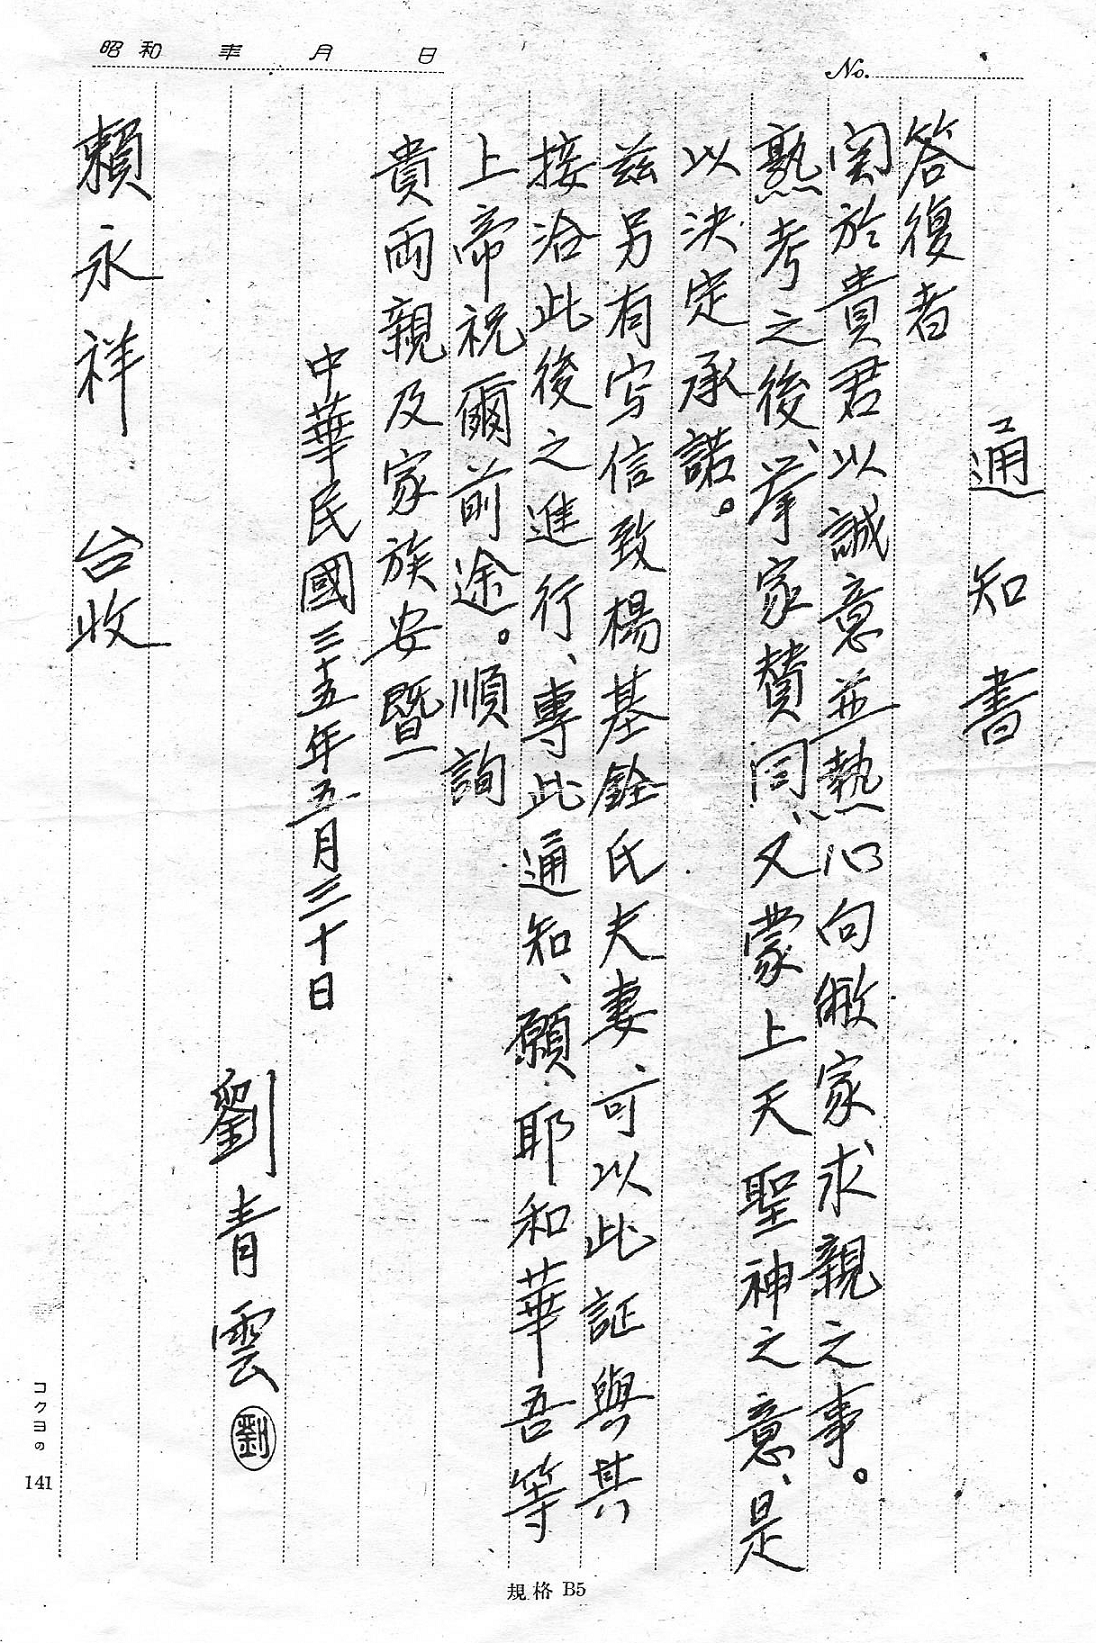 昭和 年 月 日
No.
通知書
答復者
関於貴君以誠意並熱心向敝家求親之事。
熟考之後、挙家賛同、又蒙上天聖神之意、是
以決定承諾。
茲另有写信致楊基銓氏夫妻、可以此証與其
接洽此後之進行、專此通知、願耶和華吾等
上帝祝爾前途。順詢
貴両親及家族安暨
中華民國三十五年五月三十日
劉青雲 劉
賴永祥 台收
コクヨの 141
規格 B5